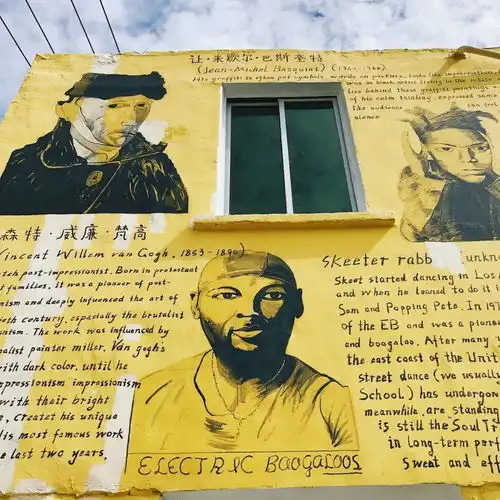 让·米歇尔·巴斯奎特
(Jean-Michel Basquiat) (1960-1988)
His graffiti is often put symbols, words on picture, looks like
lies behind these graffiti paintings
of his calm thinking, expressed
the audience can
森特·威廉·梵高
Vincent Willem van Gogh, 1853-1890)
tch post-impressionist. Born in protestant
t families, it was a pioneer of post-
nism and deeply influenced the art of
eth century, especially the brutalist
onism. The work was influenced by
ealist painter miller. Van gogh's
ith dark color, until he
pressionism impressionism
with their bright
e, creatct his unique
His most famous work
e last two years.
Skeeter rabb (unkno
Skeet started dancing in Los
and when he leaned to do it i
Sam and Popping Pete. In 197
of the EB and was a pione
and boogaloo. After many y
the east coast of the Unit
street dance (we usually
School) has undergon
meanwhile, are standing
is still the "Soul Tr
in long-term perf
Sweat and eff
ELECTRIC BOOGALOOS